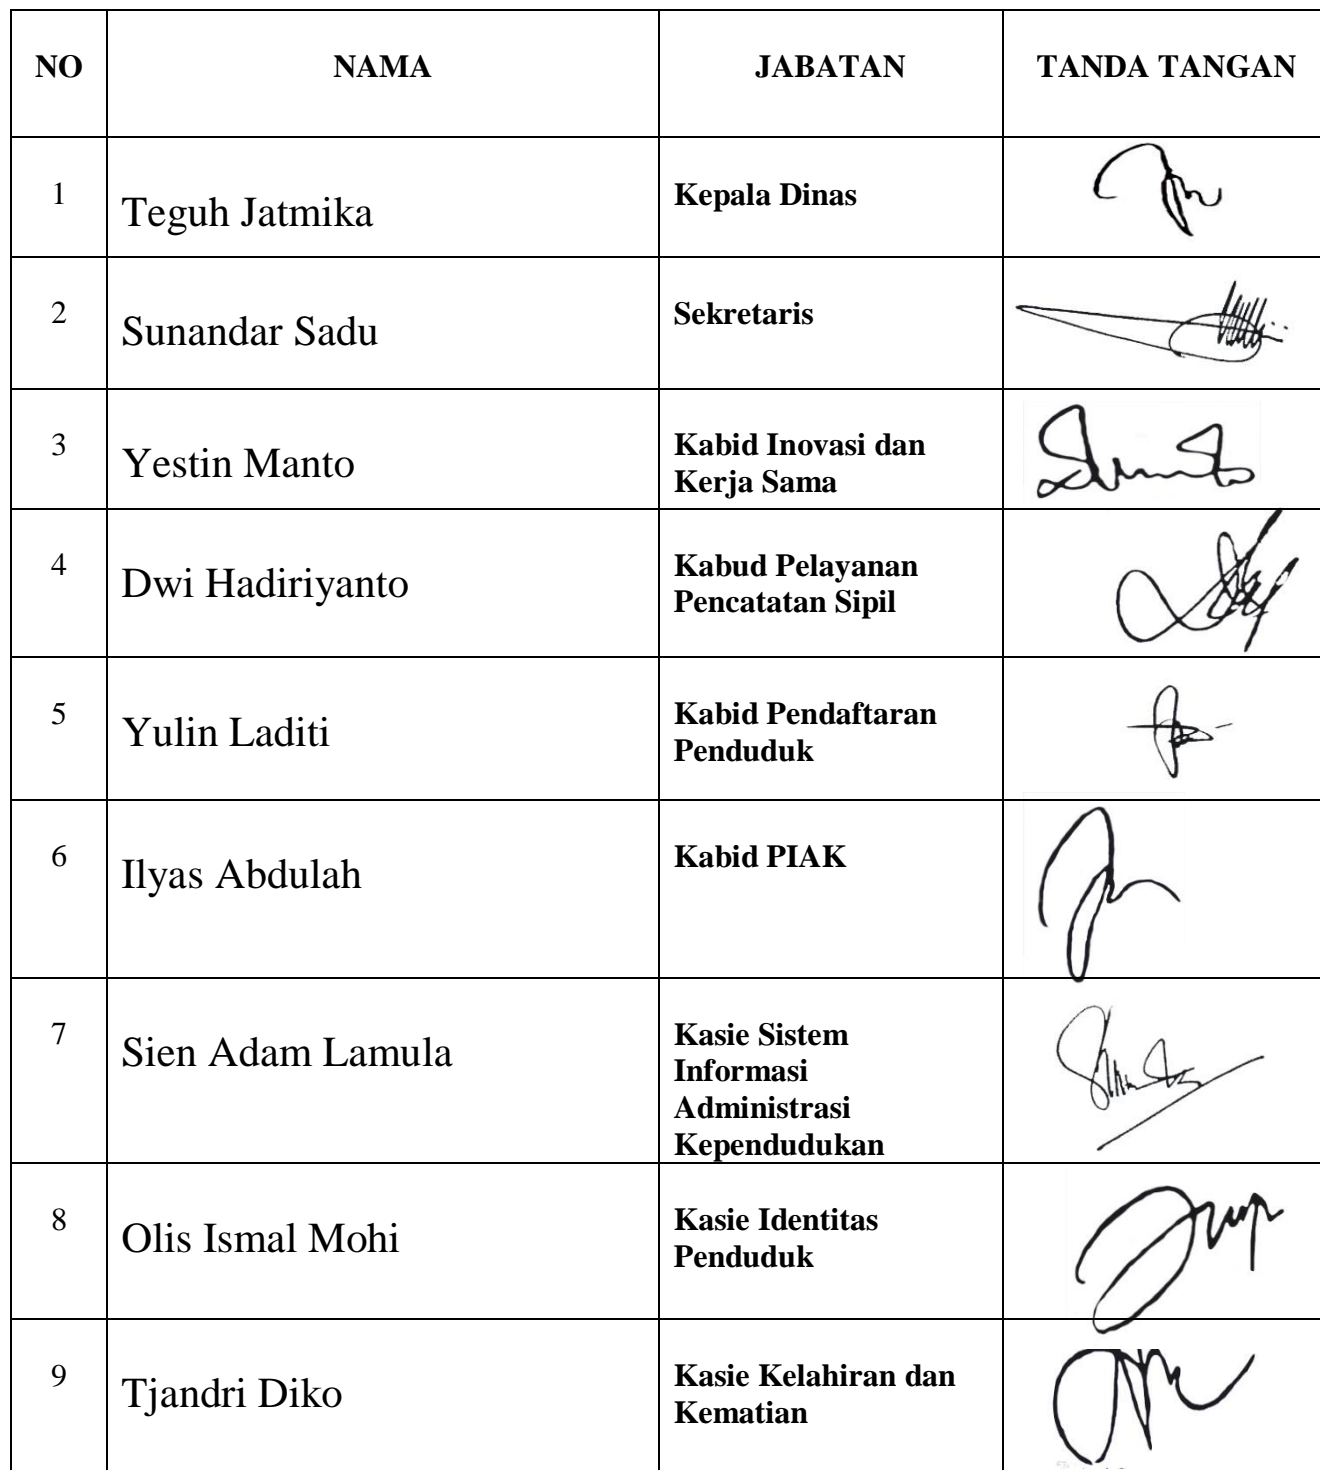 NO NAMA JABATAN TANDA TANGAN
1 Teguh Jatmika Kepala Dinas
2 Sunandar Sadu Sekretaris
3 Yestin Manto Kabid Inovasi dan
Kerja Sama
4 Dwi Hadiriyanto Kabud Pelayanan
Pencatatan Sipil
5 Yulin Laditi Kabid Pendaftaran
Penduduk
6 Ilyas Abdulah Kabid PIAK
7 Sien Adam Lamula Kasie Sistem
Informasi
Administrasi
Kependudukan
8 Olis Ismal Mohi Kasie Identitas
Penduduk
9 Tjandri Diko Kasie Kelahiran dan
Kematian